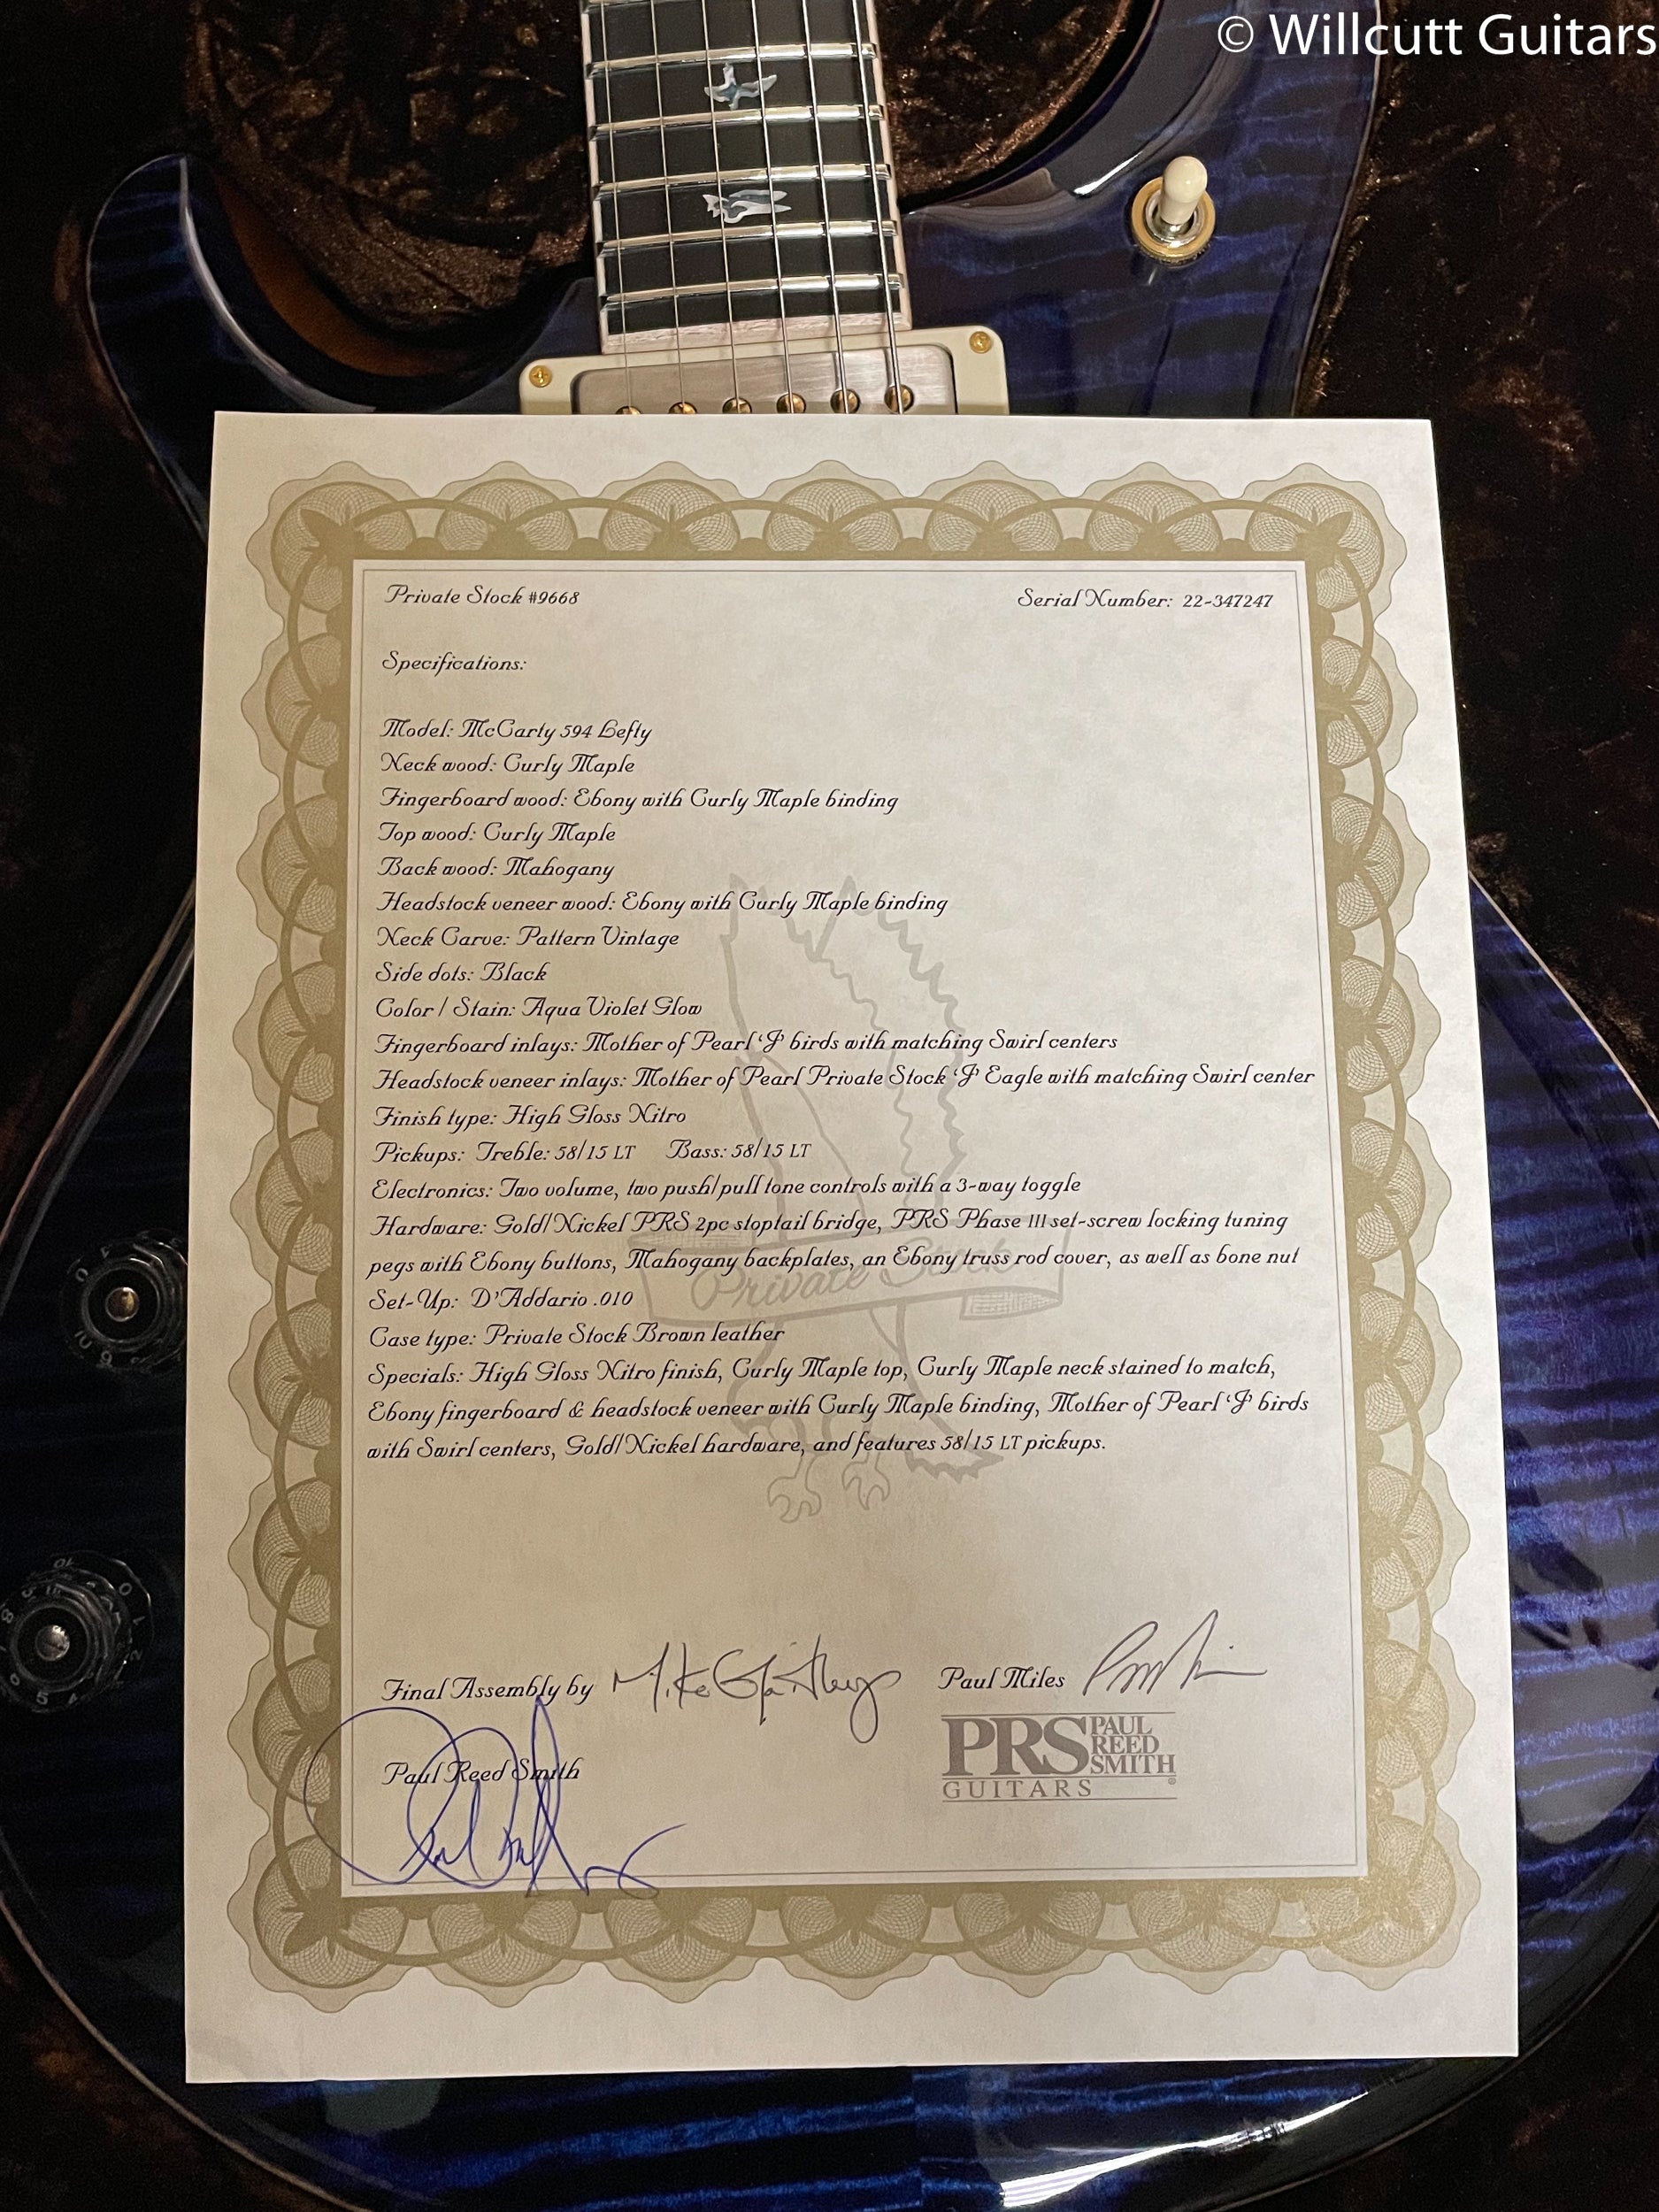 © Willcutt Guitars
Private Stock #9668
Serial Number: 22-347247
Specifications:
Model: McCarty 594 Lefty
Neck wood: Curly Maple
Fingerboard wood: Ebony with Curly Maple binding
Top wood: Curly Maple
Back wood: Mahogany
Headstock veneer wood: Ebony with Curly Maple binding
Neck Carve: Pattern Vintage
Side dots: Black
Color / Stain: Aqua Violet Glow
Fingerboard inlays: Mother of Pearl 'J' birds with matching Swirl centers
Headstock veneer inlays: Mother of Pearl Private Stock 'J' Eagle with matching Swirl center
Finish type: High Gloss Nitro
Pickups: Treble: 58/15 LT Bass: 58/15 LT
Electronics: Two volume, two push/pull tone controls with a 3-way toggle
Hardware: Gold/Nickel PRS 2pc stoptail bridge, PRS Phase III set-screw locking tuning
pegs with Ebony buttons, Mahogany backplates, an Ebony truss rod cover, as well as bone nut
Private Stock
Set-Up: D'Addario .010
Case type: Private Stock Brown leather
Specials: High Gloss Nitro finish, Curly Maple top, Curly Maple neck stained to match,
Ebony fingerboard & headstock veneer with Curly Maple binding, Mother of Pearl 'J' birds
with Swirl centers, Gold/Nickel hardware, and features 58/15 LT pickups.
Final Assembly by Mike
Paul Miles
Paul Reed Smith
PRS PAUL
REED
SMITH
GUITARS